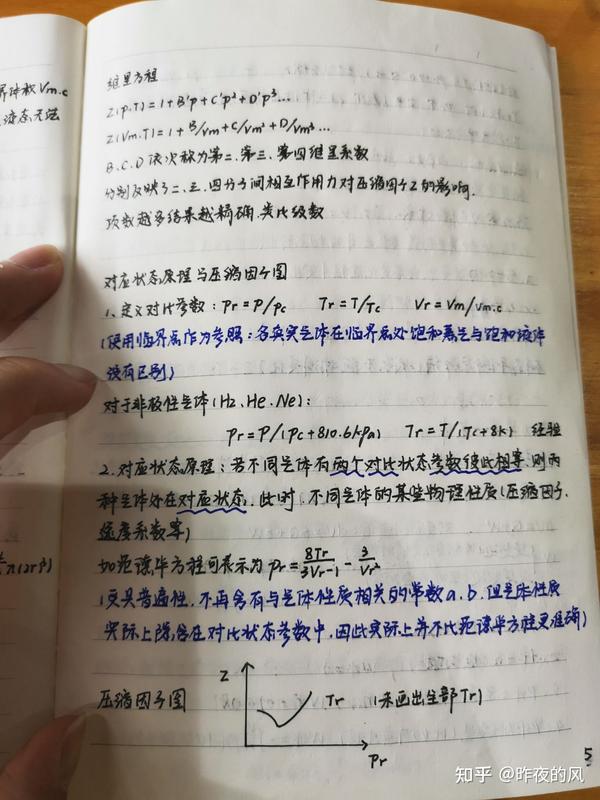 界体积Vm.c
液态无法
维里方程
Z(p.T)=1+B'p+C'p²+D'p³...
Z(Vm.T)=1+B/Vm+C/Vm²+D/Vm³...
B.C.D依次称为第二.第三.第四维里系数
分别反映了二.三.四分子间相互作用力对压缩因子Z的影响.
项数越多结果越精确.类比级数
对应状态原理与压缩因子图
1、定义对比参数：Pr=P/Pc Tr=T/Tc Vr=Vm/Vm.c
(使用临界点作为参照：各真实气体在临界点处饱和蒸气与饱和液体
没有区别)
对于非极性气体(H2.He.Ne)：
Pr=P/(Pc+810.6kPa) Tr=T/(Tc+8K) 经验
2.对应状态原理：若不同气体有两个对比状态参数彼此相等.则两
种气体处在对应状态.此时.不同气体的某些物理性质(压缩因子.
逸度系数等)
如范德华方程可表示为 Pr=8Tr/(3Vr-1)-3/Vr²
(更具普遍性.不再含有与气体性质相关的常数a.b.但气体性质
实际上隐含在对比状态参数中.因此实际上并不比范德华方程更准确)
Z
压缩因子图 Tr (未画出全部Tr)
Pr
5
知乎 @昨夜的风